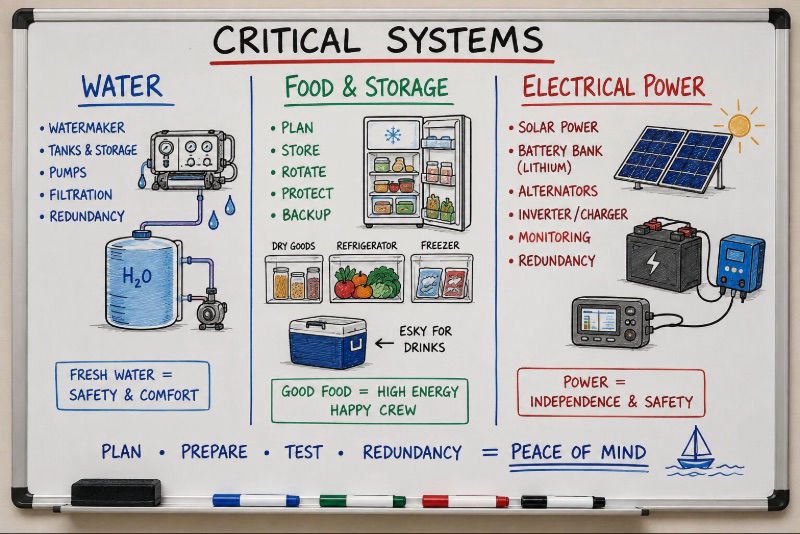 CRITICAL SYSTEMS
WATER
• WATERMAKER
• TANKS & STORAGE
• PUMPS
• FILTRATION
• REDUNDANCY
H₂O
FRESH WATER =
SAFETY & COMFORT
FOOD & STORAGE
• PLAN
• STORE
• ROTATE
• PROTECT
• BACKUP
DRY GOODS
REFRIGERATOR
FREEZER
← ESKY FOR
DRINKS
GOOD FOOD = HIGH ENERGY
HAPPY CREW
ELECTRICAL POWER
• SOLAR POWER
• BATTERY BANK
(LITHIUM)
• ALTERNATORS
• INVERTER/CHARGER
• MONITORING
• REDUNDANCY
POWER =
INDEPENDENCE & SAFETY
PLAN • PREPARE • TEST • REDUNDANCY = PEACE OF MIND